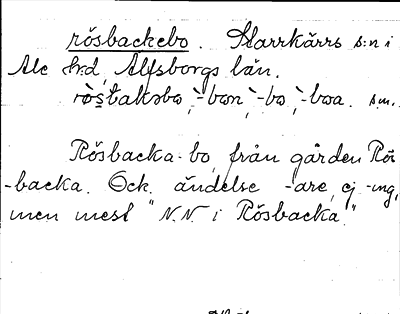 rösbackebo. Starrkärrs s:n i
Ale h:d, Älfsborgs län.
-bon, -bo, -boa. s.m.
Rösbacka-bo, från gården Rös-
-backa. Ock. ändelse -are, ej -ing,
men mest "N.N. i Rösbacka."